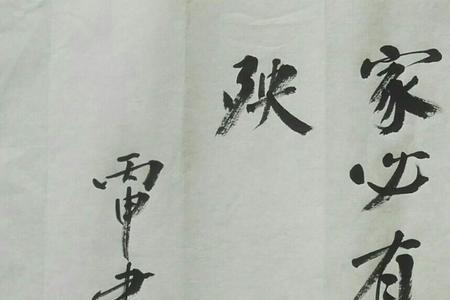 家必有
殃
雷